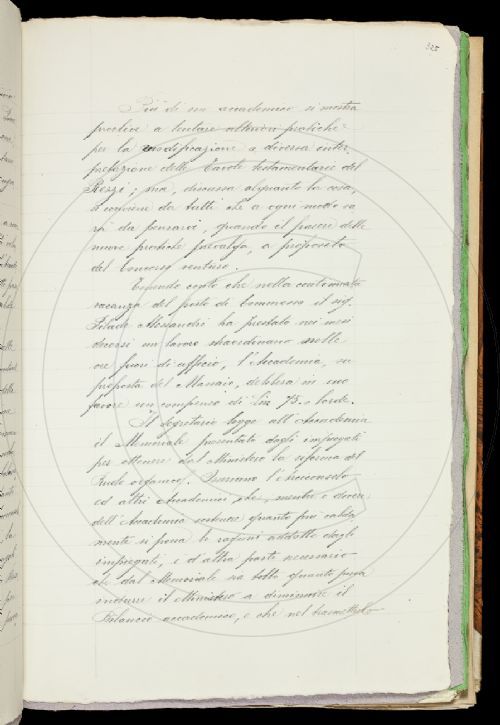 325
Più di un accademico si mostra
proclive a tentare ulteriori pratiche
per la modificazione o diversa inter-
pretazione delle tavole testamentarie del
Rezzi; ma, discussa alquanto la cosa,
si conviene da tutti che a ogni modo sa
rà da pensarci, quando il parere delle
nuove pratiche prevalga, a proposito
del Concorso venturo.
Tenendo conto che nella continuata
vacanza del posto di Commesso il sig.
Pilade Alessandri ha prestato nei mesi
decorsi un lavoro straordinario nelle
ore fuori di ufficio, l'Accademia, su
proposta del Massaio, delibera in suo
favore un compenso di Lire 75. lorde.
Il Segretario legge all'Accademia
il Memoriale presentato dagli impiegati
per ottenere dal Ministero la riforma del
Ruolo organico. Osservano l'Arciconsolo
ed altri Accademici, che, mentre è dovere
dell'Accademia sostenere quanto più calda
mente si possa le ragioni addotte dagli
impiegati, è d'altra parte necessario
che dal Memoriale sia tolto quanto possa
indurre il Ministero a diminuire il
Bilancio accademico, e che nel trasmetterlo